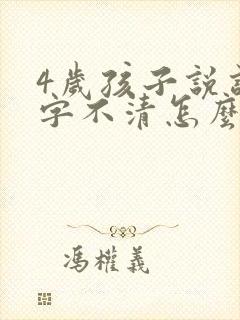 4歲孩子說話
字不清怎麼
馮權義